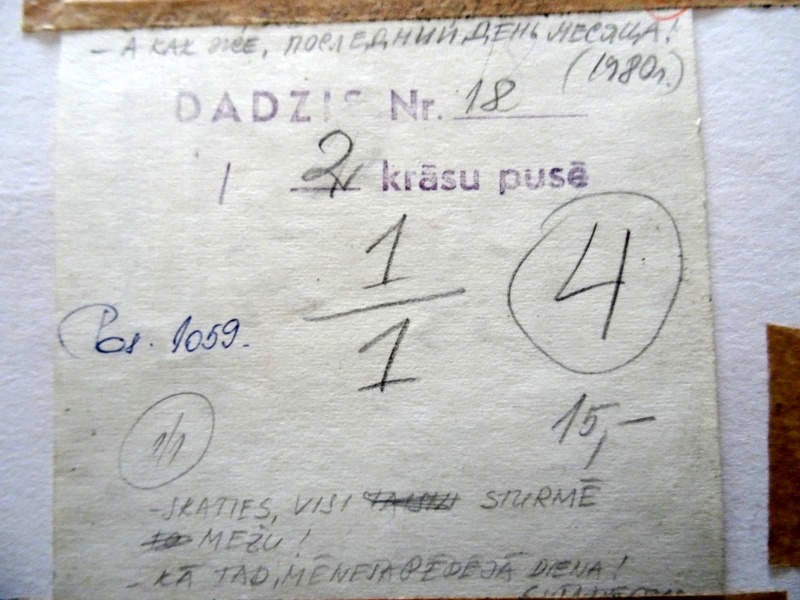 - А КАК ЖЕ, ПОСЛЕДНИЙ ДЕНЬ МЕСЯЦА!
(1980г.)
DADZIS Nr. 18
1 2 krāsu pusē
1
1
4
Pos. 1059.
1/1
15,-
- SKATIES, VISI STURMĒ
MEŽU!
- KĀ TAD, MĒNEŠA PĒDĒJĀ DIENA!